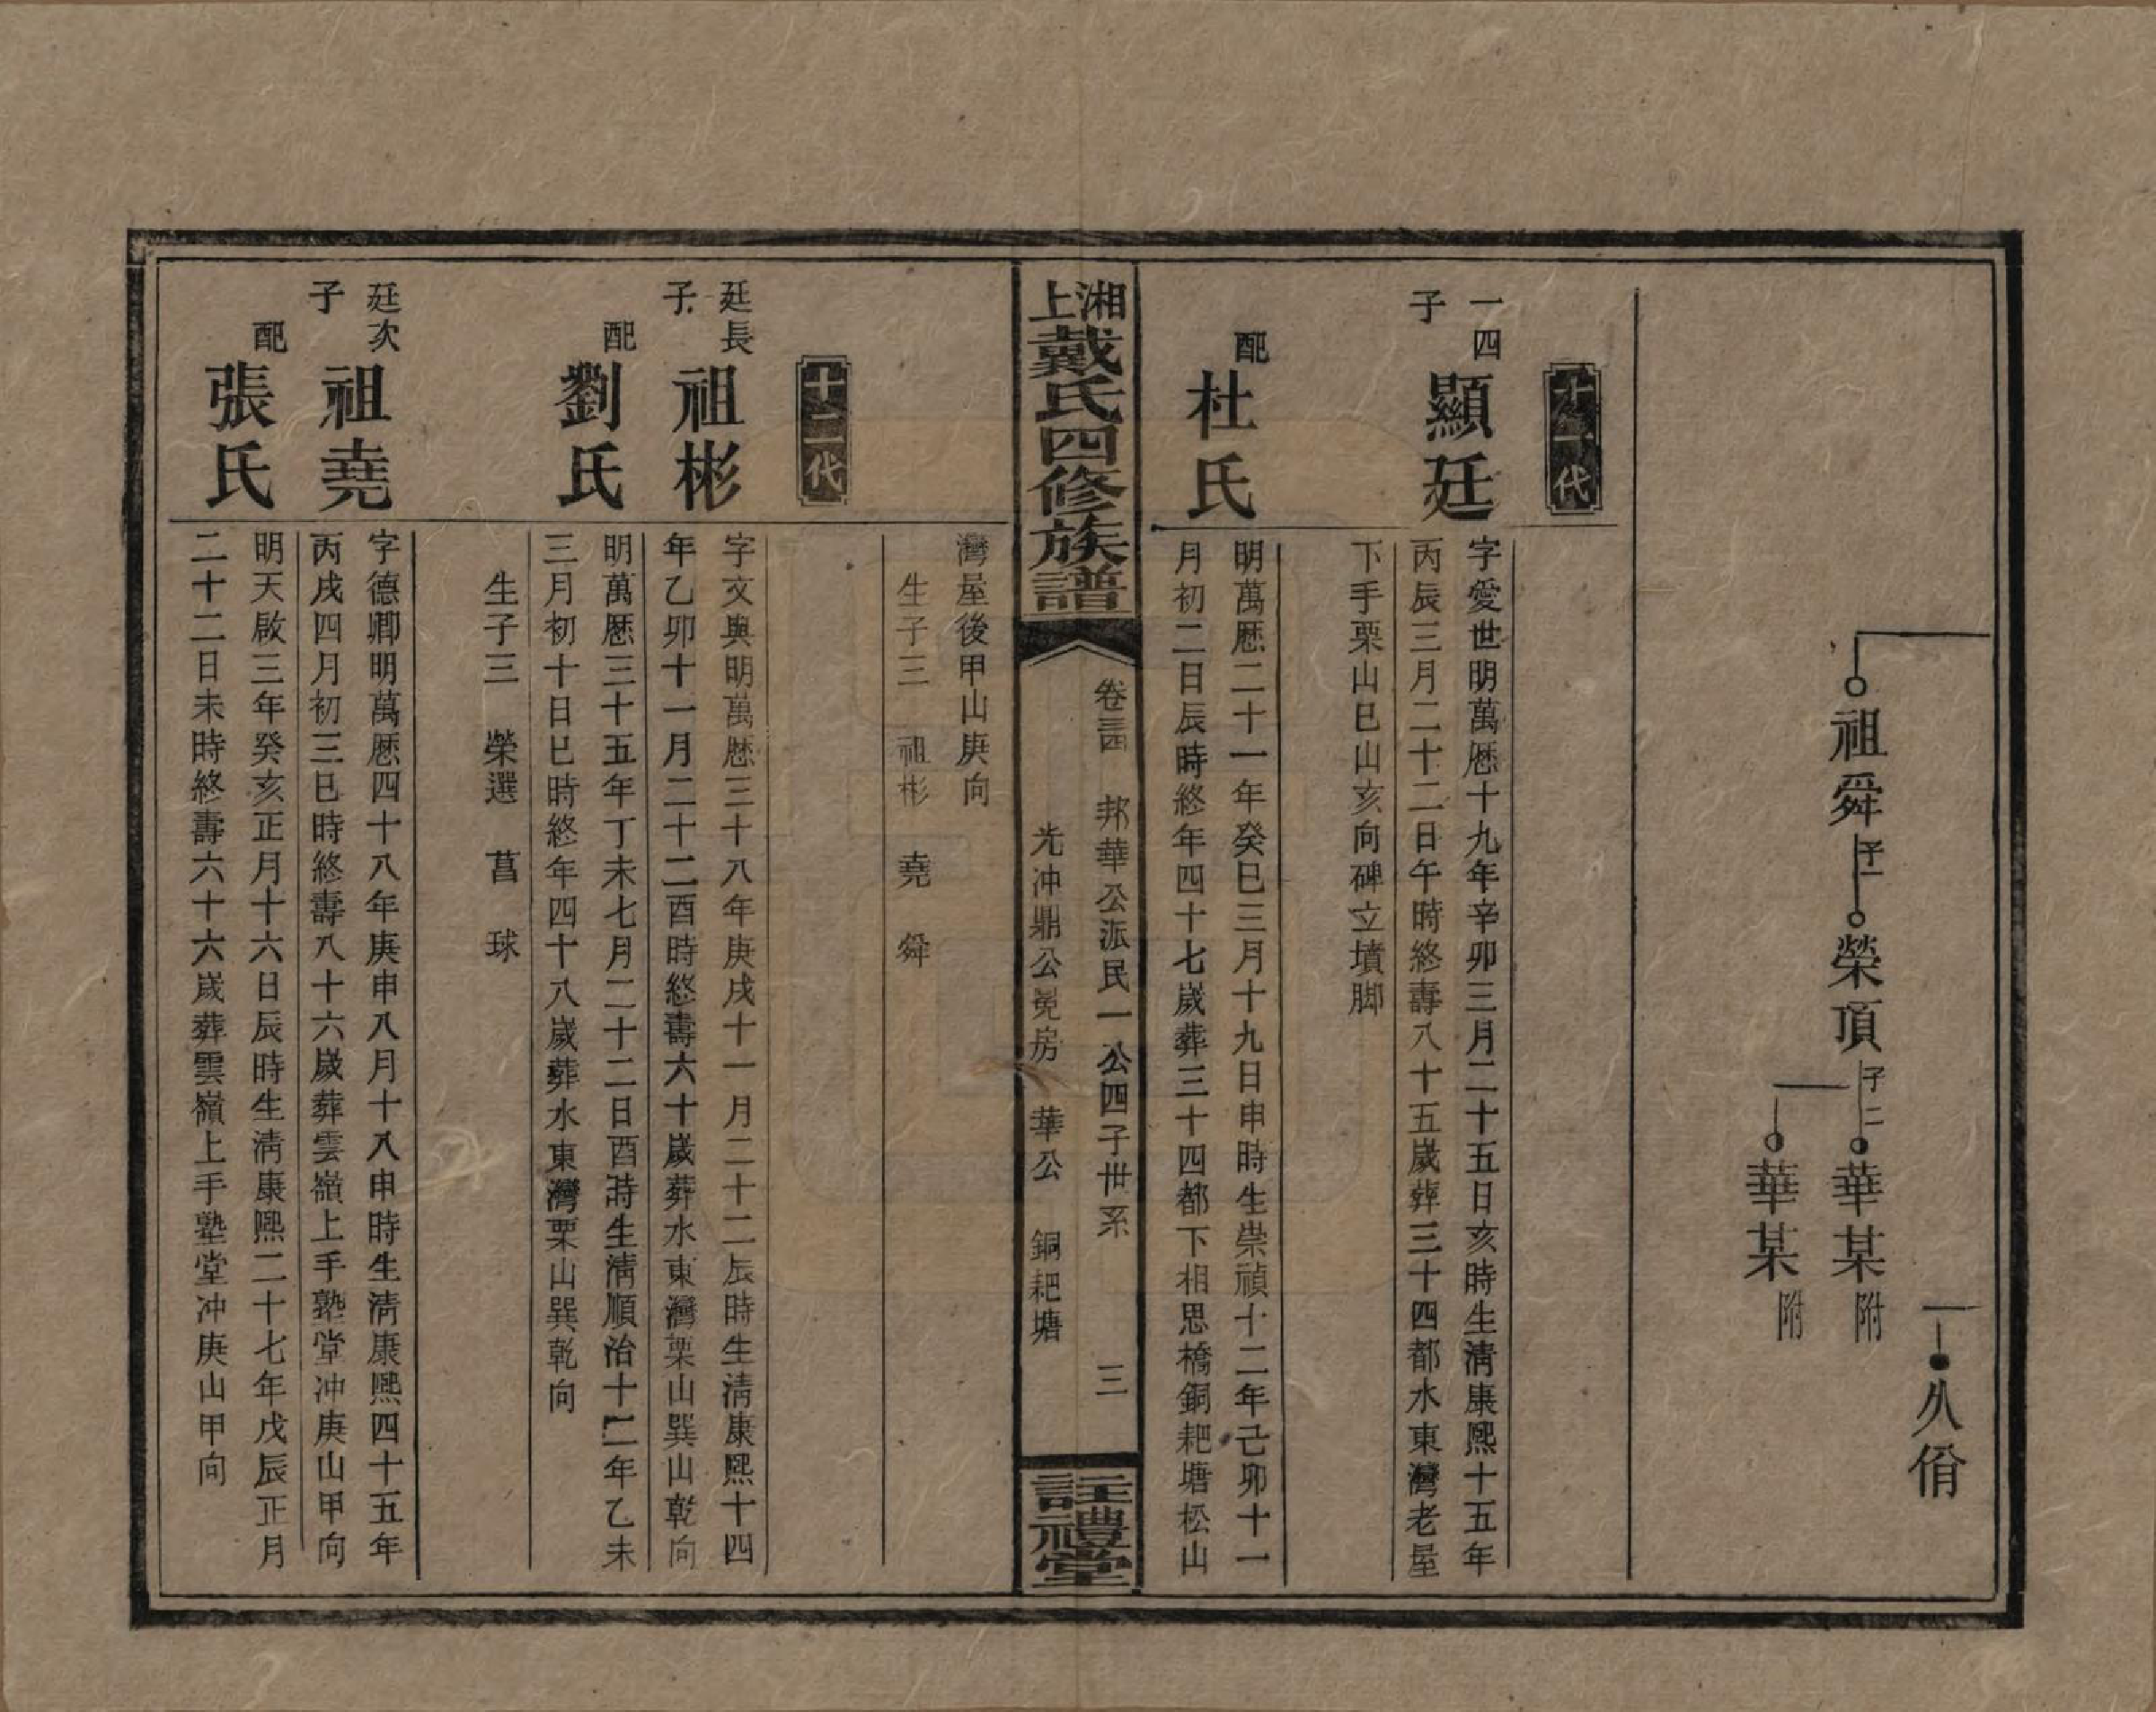 祖舜 子一 榮頂 子二 華某 附
華某 附
八佾
十一代
一四子 顯廷
字愛世明萬歷十九年辛卯三月二十五日亥時生清康熙十五年
丙辰三月二十二日午時終壽八十五歲葬三十四都水東灣老屋
下手栗山巳山亥向碑立墳脚
配 杜氏
明萬歷二十一年癸巳三月十九日申時生崇禎十二年己卯十一
月初二日辰時終年四十七歲葬三十四都下相思橋銅耙塘松山
湘上戴氏四修族譜
卷三四 邦華公派民一公四子世系 三
光冲鼎公冕房 華公 銅耙塘
註禮堂
灣屋後甲山庚向
生子三 祖彬 堯 舜
十二代
廷長子 祖彬
字文興明萬歷三十八年庚戌十一月二十二辰時生清康熙十四
年乙卯十一月二十二酉時終壽六十歲葬水東灣栗山巽山乾向
配 劉氏
明萬歷三十五年丁未七月二十二日酉時生清順治十二年乙未
三月初十日巳時終年四十八歲葬水東灣栗山巽乾向
生子三 榮選 菖 球
廷次子 祖堯
字德卿明萬歷四十八年庚申八月十八申時生清康熙四十五年
丙戌四月初三巳時終壽八十六歲葬雲嶺上手塾堂冲庚山甲向
配 張氏
明天啟三年癸亥正月十六日辰時生清康熙二十七年戊辰正月
二十二日未時終壽六十六歲葬雲嶺上手塾堂冲庚山甲向